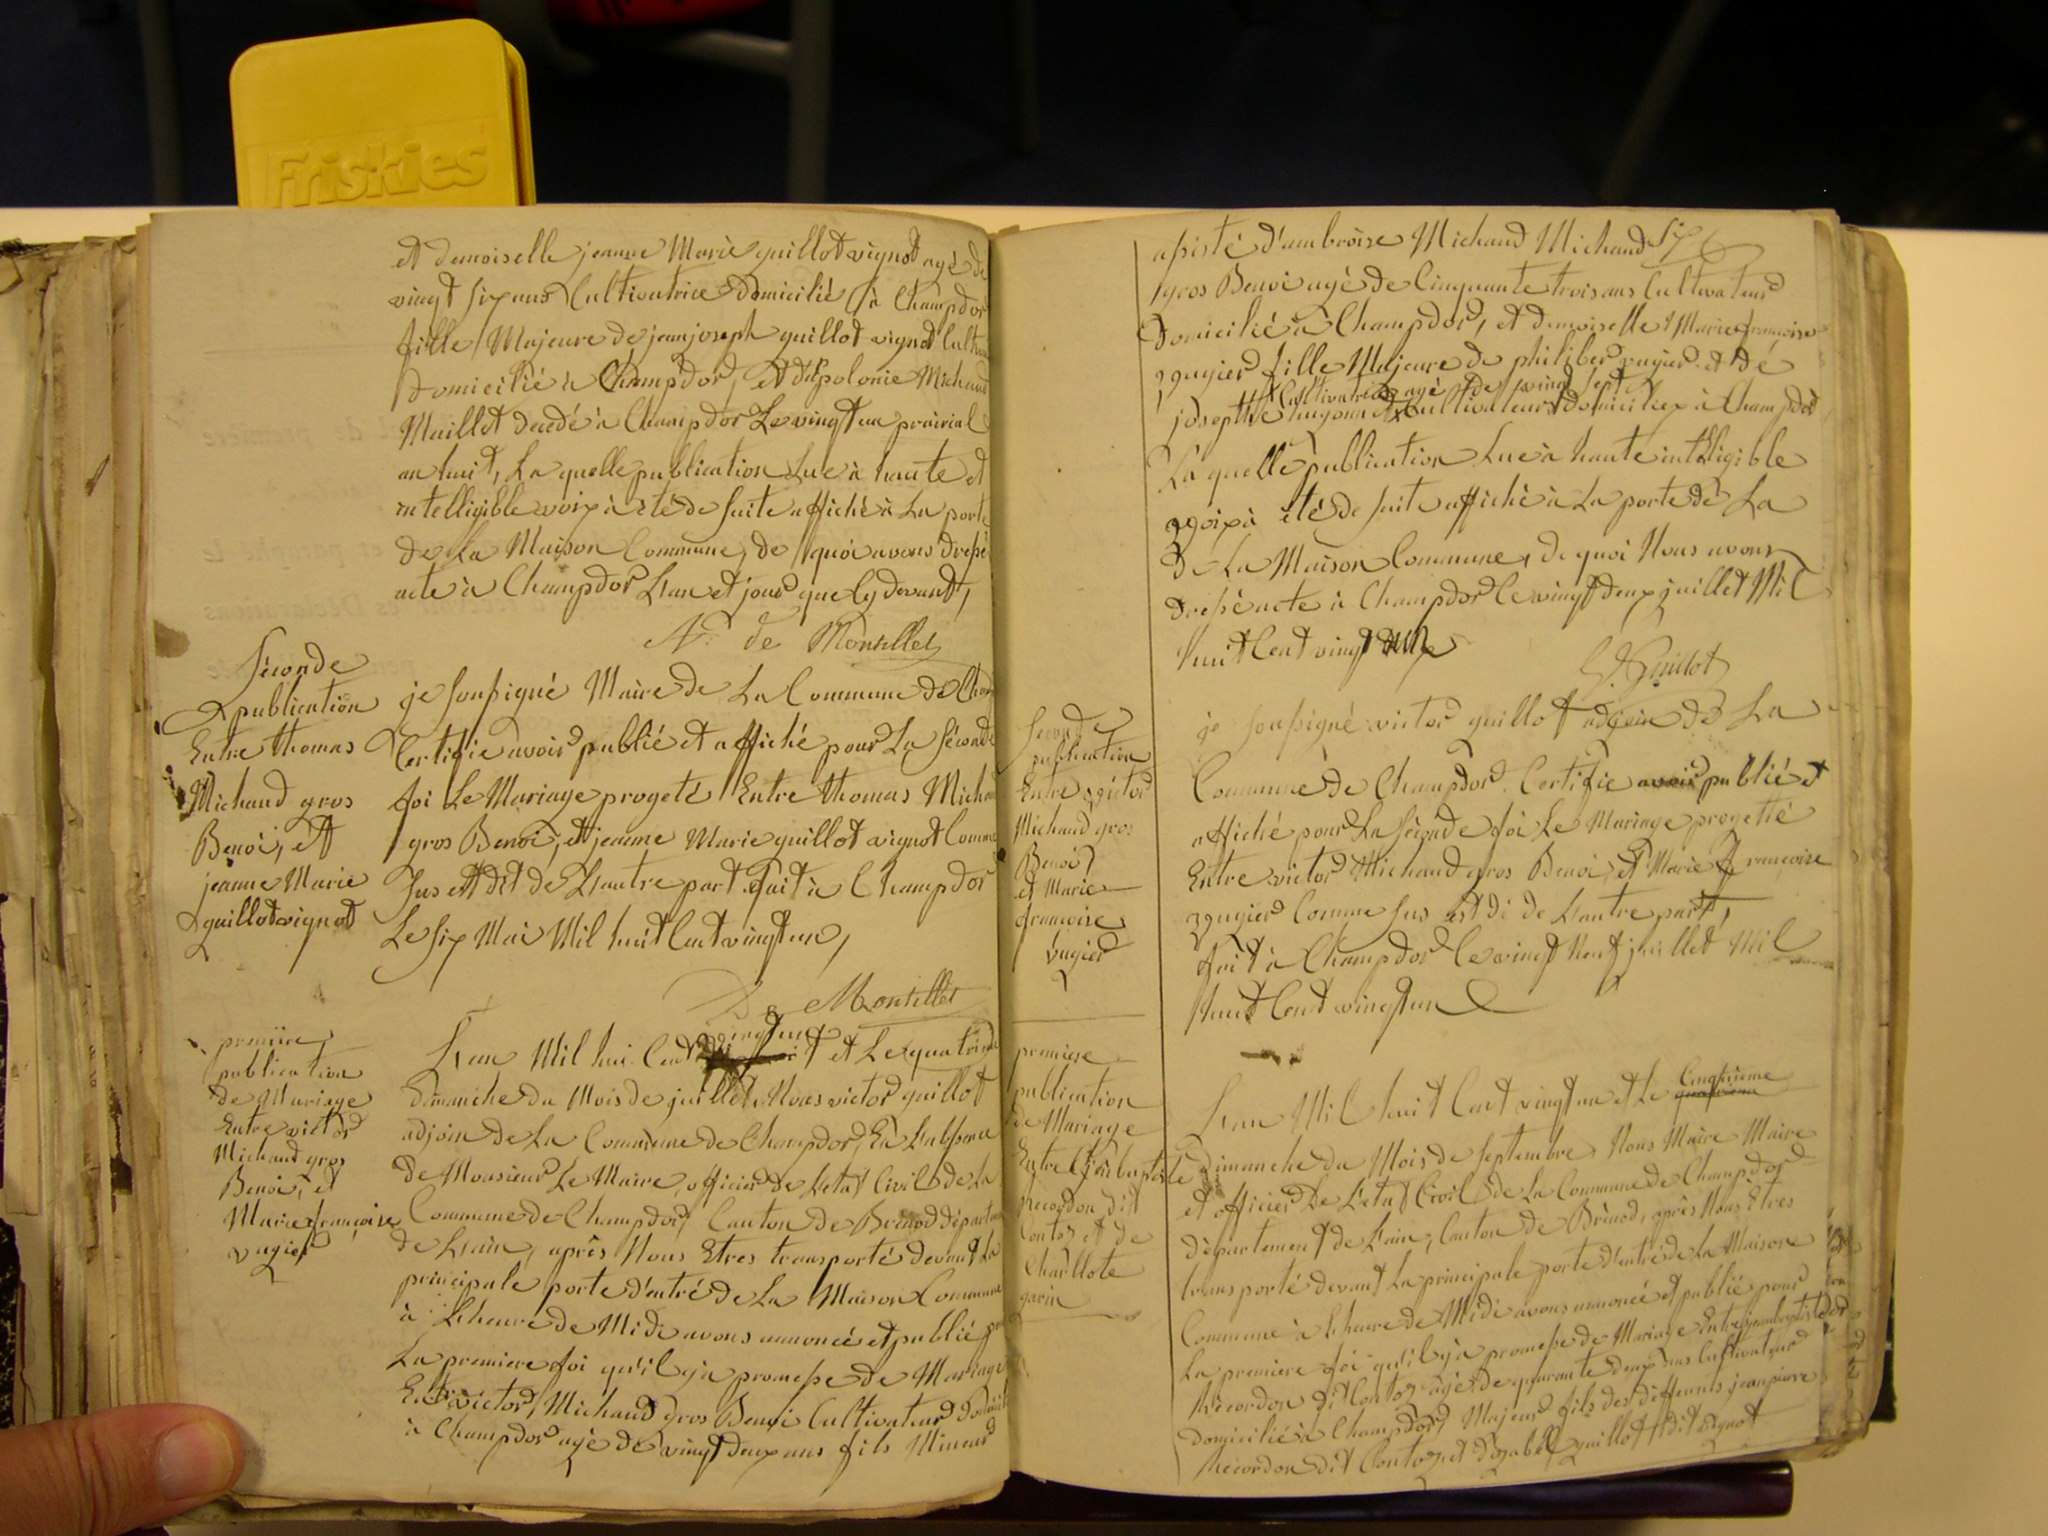 Friskies
et demoiselle jeanne Marie guillot vignot agé de
vingt six ans Cultivatrice domicilié à Champdor
fille Majeure de jean joseph guillot vignot Cultiva
domicilié à Champdor, et d'apolonie Michaud
Maillet decedé à Champdor Le vingt un prairial
an huit, La quelle publication Lue à haute et
intelligible voix à été de suite affiché à La porte
de La Maison Commune, de quoi avons dressé
acte à Champdor L'an et jour que Cy devant,
De Montillet
Séconde
publication
Entre thomas
Michaud gros
Benoi, et
jeanne Marie
guillot vignot
je soussigné Maire de La Commune de Cham
Certifie avoir publié et affiché pour La séconde
foi Le Mariage progeté Entre thomas Michaud
gros Benoi, et jeanne Marie guillot vignot Comme
sus est dit de L'autre part. Fait à Champdor
Le six Mai Mil huit Cent vingt un,
De Montillet
premiire
publication
de Mariage
Entre victor
Michaud gros
Benoi, et
Marie françoise
vugier
L'an Mil hui Cent vingt un et Le quatrième
dimanche du Mois de juillet, Nous victor guillot
adjoin de La Commune de Champdor, En L'absence
de Monsieur Le Maire, officier de L'etat Civil de La
Commune de Champdor, Canton de Brénod départem
de L'ain, après Nous Etres transporté devant La
principale porte d'entré de La Maison Commune
à L'heure de Midi avons annoncé et publié pr
La premiere foi qu'il y a promesse de Mariage
Entre victor Michaud gros Benoi Cultivateur domicilié
à Champdor agé de vingt deux ans fils Mineur
assisté d'ambroise Michaud Michaud
gros Benoi agé de Cinquante trois ans Cultivateur
domicilié à Champdor, et demoiselle Marie françoise
vugier fille Majeure de philiber vugier et dé
Cultivatrice agé de vingt sept
josepthe Cultivateurs domiciliez à Champdor
La quelle publication Lue à haute intelligible
voix à été de suite affiché à La porte dé La
de La Maison Commune, de quoi Nous avons
dressé acte à Champdor le vingt deux juillet Mil
huit Cent vingt
V. Guillot
Seconde
publication
Entre victor
Michaud gros
Benoi
et Marie
françoise
vugier
je soussigné victor guillot adjoin de La
Commune de Champdor. Certifie avoir publié et
affiché pour La séconde foi Le Mariage progetté
Entre victor Michaud gros Benoi, et Marie françoise
vugier Comme sus est di de L'autre part,
fait à Champdor le vingt Neuf juillet Mil
huit Cent vingt un
premiere
publication
de Mariage
Entre jean baptiste
Récordon dit
Contoz et de
Charllote
garin
L'an Mil huit Cent vingt un et Le Cinquieme
dimanche du Mois de septembre, Nous Maire Maire
et officier De L'etat Civil de La Commune de Champdor
département de L'ain, Canton de Brénod, après Nous Etres
transporté devant La principale porte d'entré de La Maison
Commune à L'heure de Midi avons annoncé et publié pour
La premiere foi qu'il y à promesse de Mariage Entre jean baptiste
Récordon dit Contoz agé de quarante deux ans Cultivateur
domicilié à Champdor, Majeur fils des deffeunts jean pierre
Récordon dit Contoz, et d'izabel guillot dit vignot